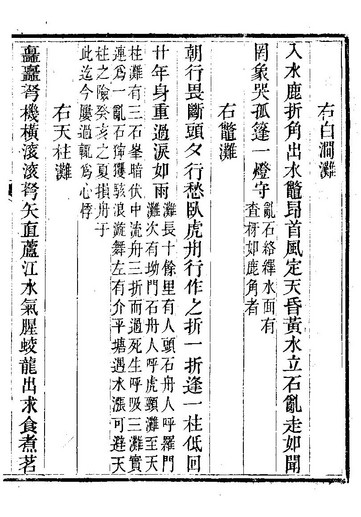 右白澗灘
入水鹿折角出水鼈昂首風定天昏黃水立石亂走如聞
罔象哭孤篷一燈守亂石絡繹水面有
查枒如鹿角者
右鼈灘
朝行畏斷頭夕行愁臥虎舟行作之折一折逢一柱低回
廿年身重過淚如雨灘長十餘里有人頭石舟人呼羅門
灘次有坳門石舟人呼虎頸灘至天
柱灘有三石峯暗伏中流舟三折而過死生呼吸三灘實
連爲一亂石狰獰駭浪旋舞左有介平塘遇水漲可避天
柱之險癸亥之夏損舟于
此迄今屢過輒爲心悸
右天柱灘
矗矗弩機橫滚滚弩矢直蘆江水氣腥蛟龍出求食煮茗